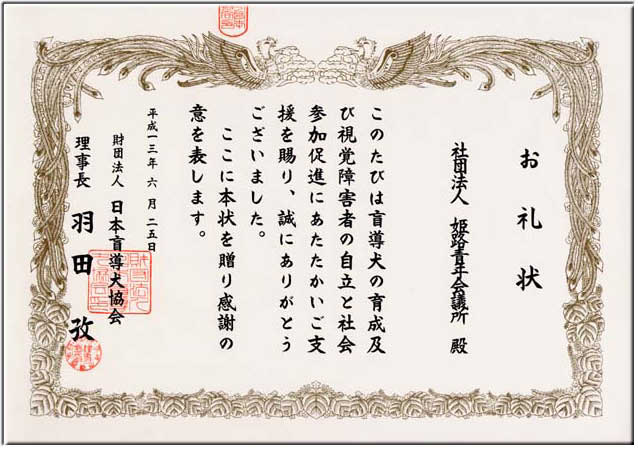 お礼状
社団法人 姫路青年会議所 殿
このたびは盲導犬の育成及
び視覚障害者の自立と社会
参加促進にあたたかいご支
援を賜り、誠にありがとう
ございました。
ここに本状を贈り感謝の
意を表します。
平成一三年 六月 二五日
財団法人 日本盲導犬協会
理事長 羽田 孜